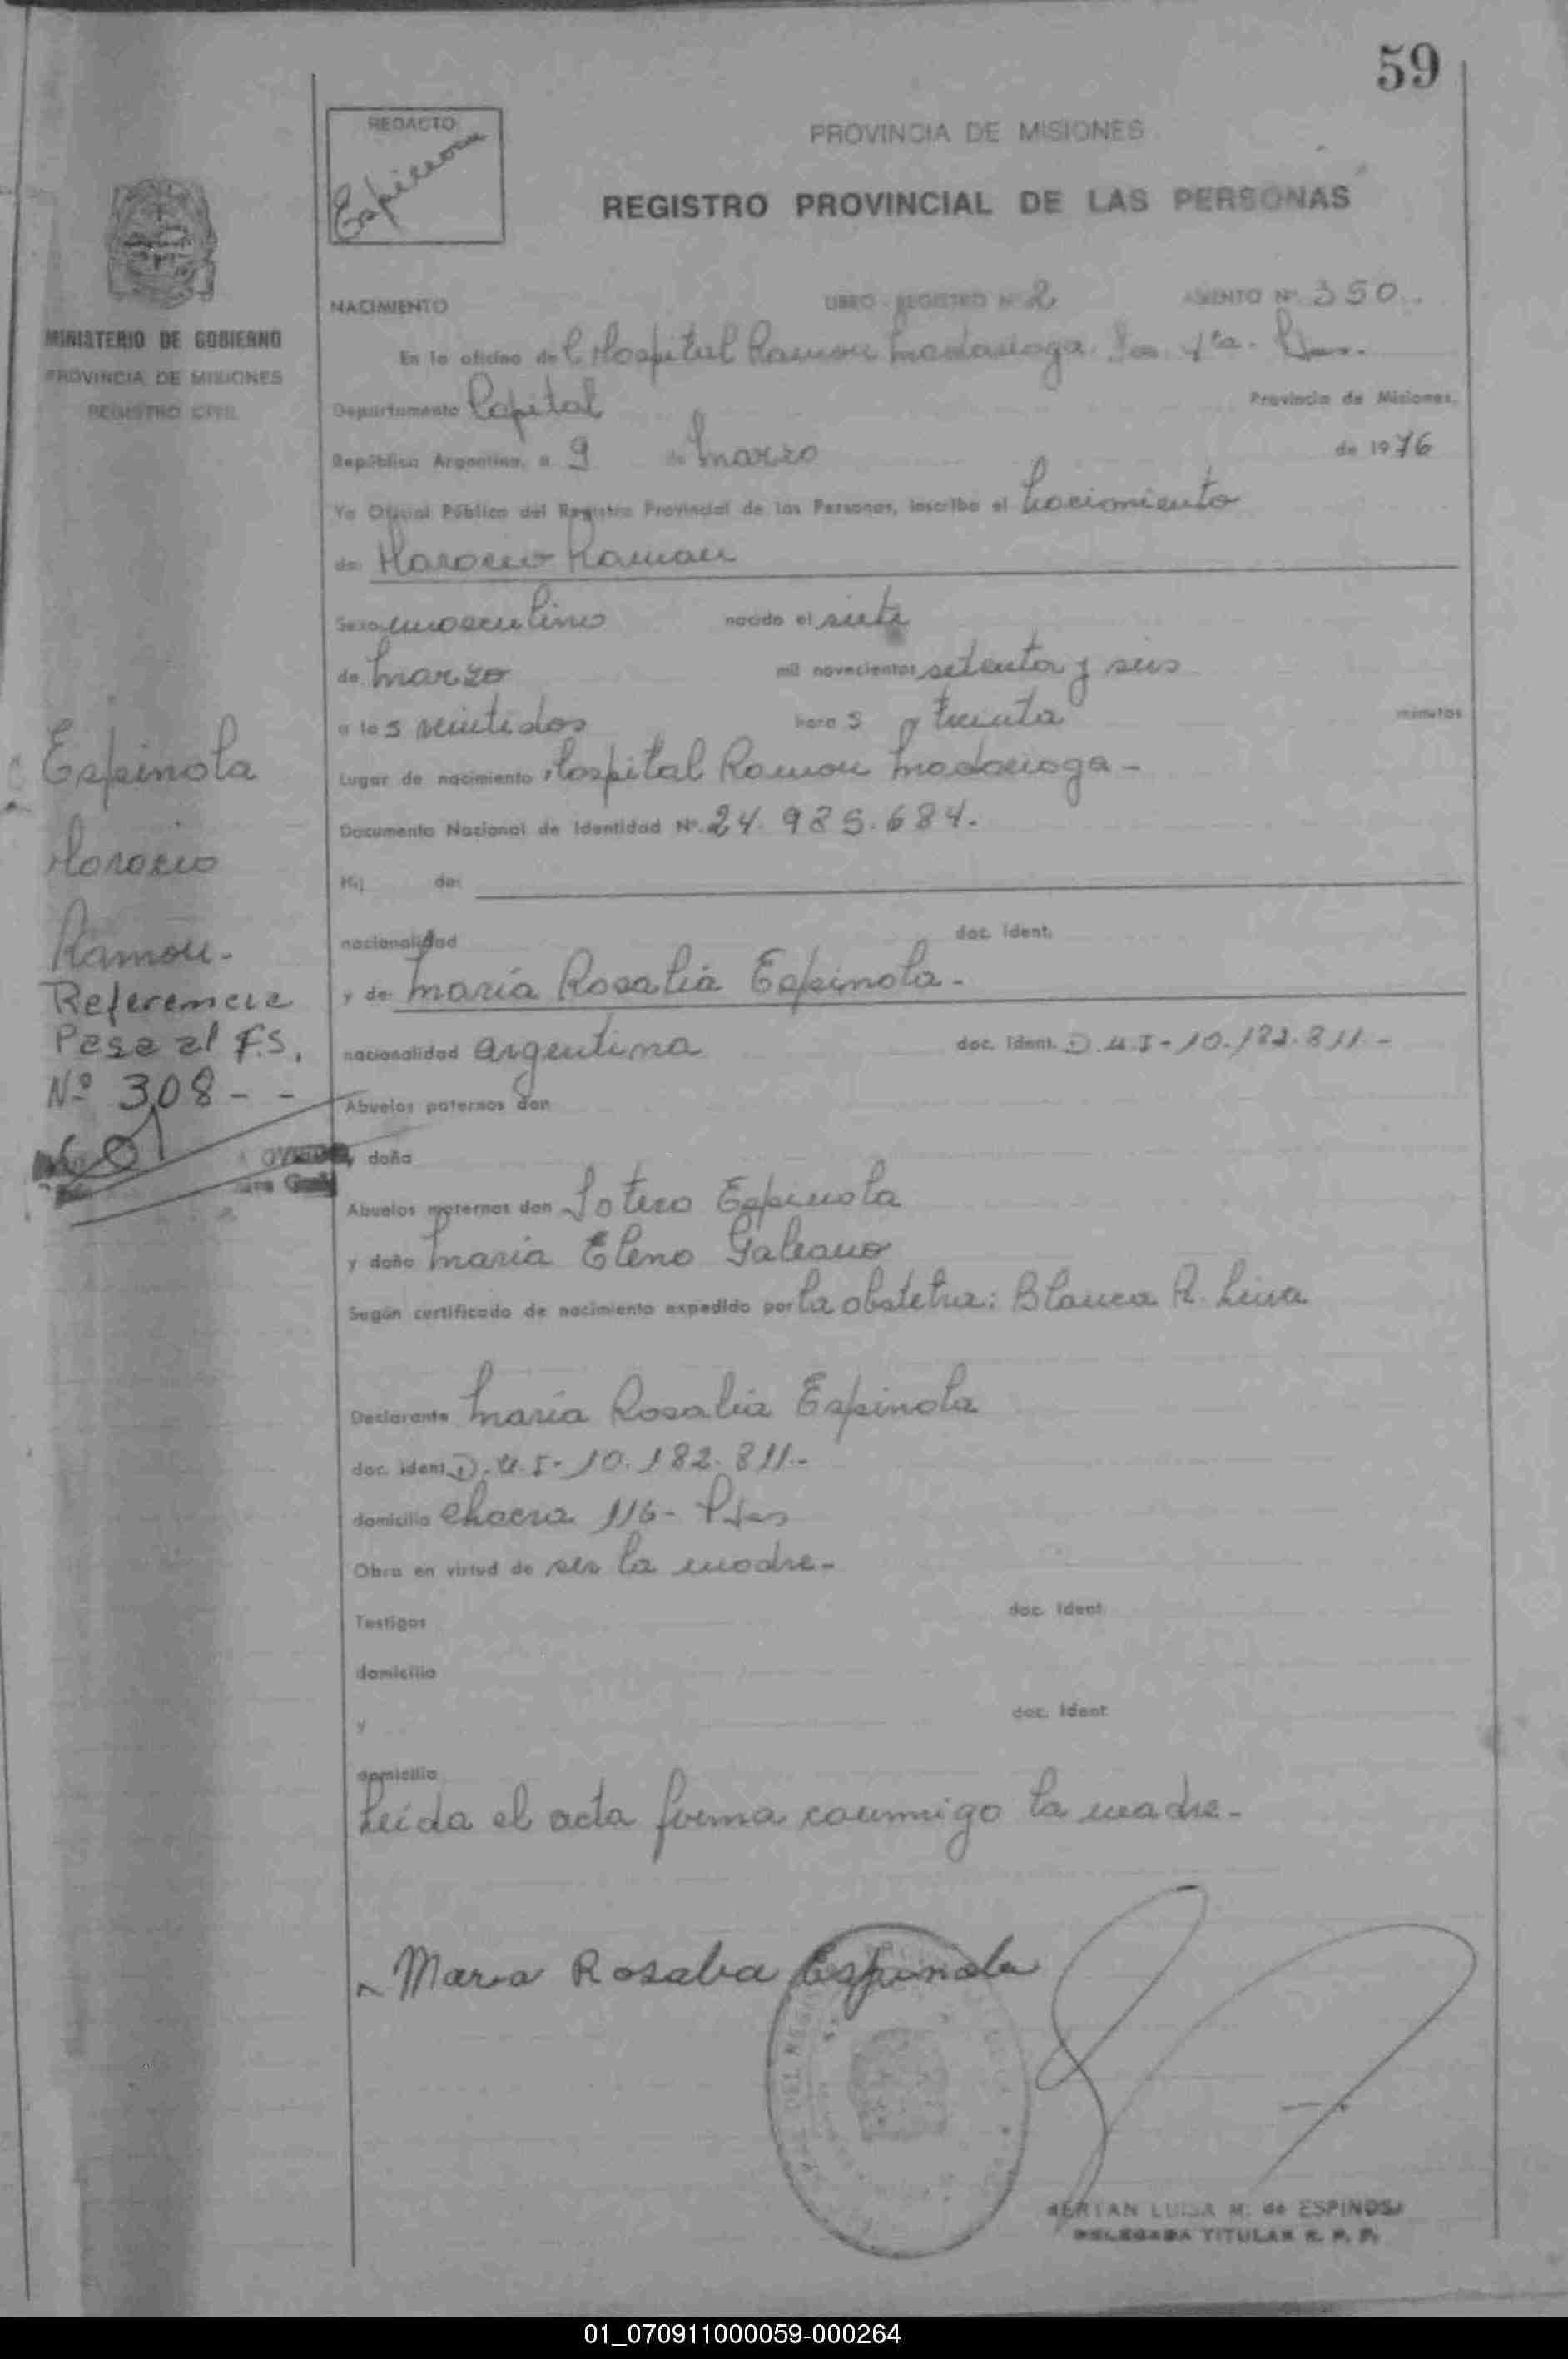 59
REDACTO
Espinosa
PROVINCIA DE MISIONES
REGISTRO PROVINCIAL DE LAS PERSONAS
MINISTERIO DE GOBIERNO
PROVINCIA DE MISIONES
REGISTRO CIVIL
NACIMIENTO LIBRO - REGISTRO Nº 2 ASIENTO Nº 350
En la oficina del Hospital Ramon Madariaga
Departamento Capital Provincia de Misiones,
República Argentina, a 9 de Marzo de 1976
Yo Oficial Público del Registro Provincial de las Personas, inscribo el Nacimiento
de: Horacio Ramon
Sexo masculino nacido el siete
de Marzo mil novecientos setenta y seis
a las veintidos horas y treinta minutos
Lugar de nacimiento Hospital Ramon Madariaga -
Documento Nacional de Identidad Nº 24.985.684.
Hij de:
nacionalidad doc. ident.
y de: Maria Rosalia Espinola -
nacionalidad argentina doc. ident. D.U.I - 10.182.811 -
Abuelos paternos don
y doña
Abuelos maternos don Sotero Espinola
y doña Maria Elena Galeano
Según certificado de nacimiento expedido por la obstetra: Blanca R. Leiva
Declarante Maria Rosalia Espinola
doc. ident. D.U.I - 10.182.811 -
domicilio Chacra 116 - Pdas
Obra en virtud de ser la madre -
Testigos doc. ident.
domicilio
y doc. ident.
domicilio
Leida el acta firma conmigo la madre -
Maria Rosalia Espinola
LUISA M. de ESPINOSA
DELEGADA TITULAR R. P. P.
Espinola
Horacio
Ramon -
Referencia
Pasa al F.S.
Nº 308 - -
01_070911000059-000264